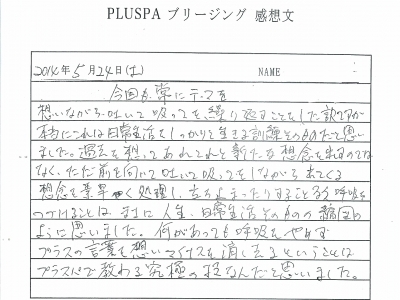 PLUSPA ブリージング 感想文
2014年5月24日(土) NAME
今回も常にテーマを
想いながら吐いて吸ってを、繰り返すことをした訳ですが
本当にこれは日常生活をしっかりと生きる訓練そのものだと思い
ました。過去を想ってあれこれと新たな想念を出すのでは
なく、ただ前を向いて吐いて吸ってをしながら出てくる
想念を素早く処理し、立ち止まったりすることなく呼吸を
つづけることは、まさに人生、日常生活そのものの縮図の
ように思いました。何があっても呼吸を、やめず
プラスの言葉を想いマイナスを消し去るということは
プラスパで教わる究極の技なんだと思いました。